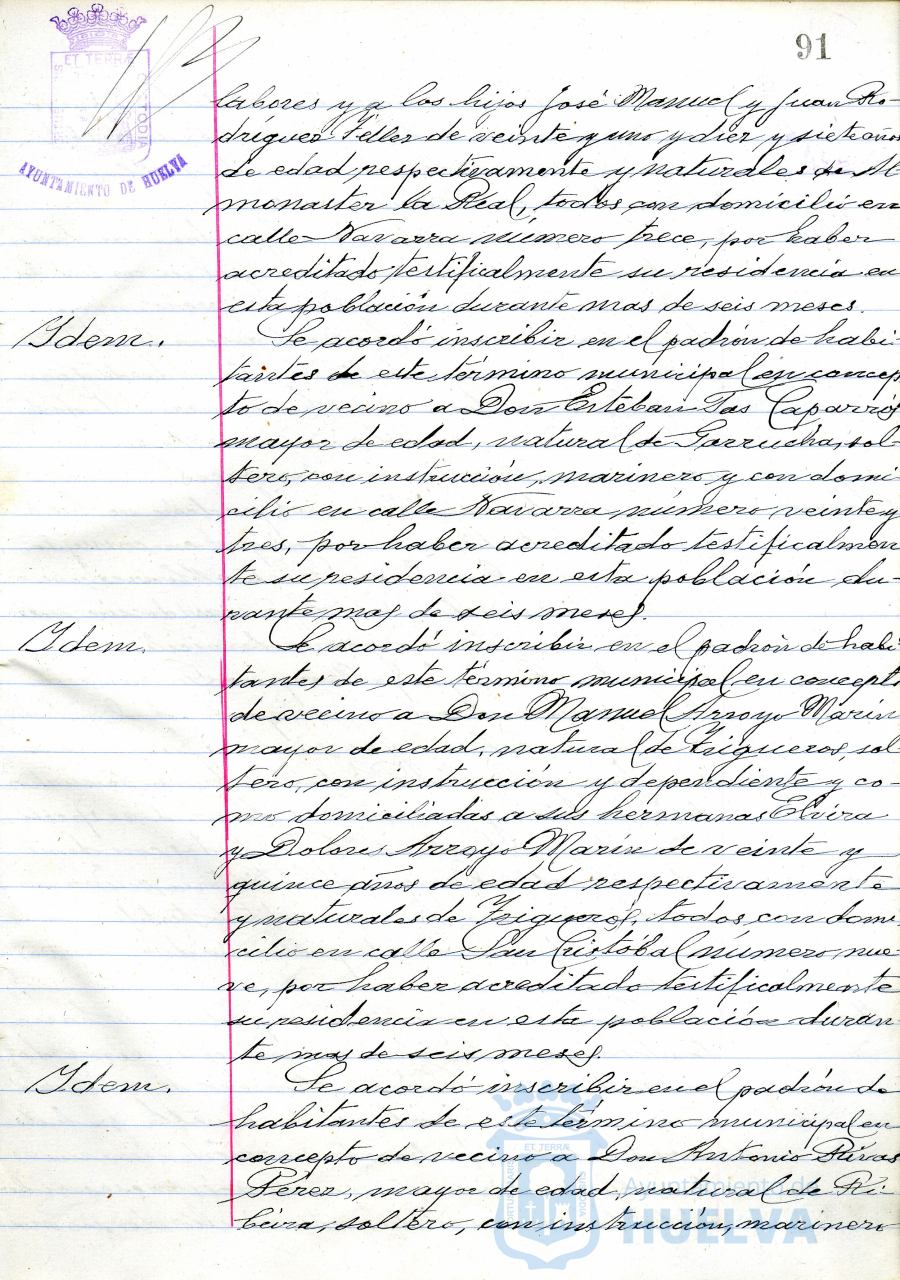 91
ET TERRÆ
CUSTODIA
AYUNTAMIENTO DE HUELVA
labores y a los hijos José Manuel y Juan Ro-
dríguez Téllez de veinte y uno y diez y siete años
de edad respectivamente y naturales de Al-
monaster la Real, todos con domicilio en
calle Navarra número trece, por haber
acreditado testificalmente su residencia en
esta población durante mas de seis meses.
Idem.
Se acordó inscribir en el padrón de habi-
tantes de este término municipal en concep
to de vecino a Don Esteban Tas Caparrós
mayor de edad, natural de Garrucha, sol-
tero, con instrucción, marinero y con domi
cilio en calle Navarra número veinte y
tres, por haber acreditado testificalmen
te su residencia en esta población du-
rante mas de seis meses.
Idem.
Se acordó inscribir en el padrón de habi
tantes de este término municipal en concepto
de vecino a Don Manuel Arroyo Marín
mayor de edad, natural de Trigueros, sol
tero, con instrucción y dependiente y co-
mo domiciliadas a sus hermanas Elvira
y Dolores Arroyo Marín de veinte y
quince años de edad respectivamente
y naturales de Trigueros, todos con domi
cilio en calle San Cristóbal número nue-
ve, por haber acreditado testificalmente
su residencia en esta población duran-
te mas de seis meses.
Idem.
Se acordó inscribir en el padrón de
habitantes de este término municipal en
concepto de vecino a Don Antonio Rivas
Pérez, mayor de edad, natural de Ri-
beira, soltero, con instrucción, marinero
ET TERRÆ
Ayuntamiento de
HUELVA